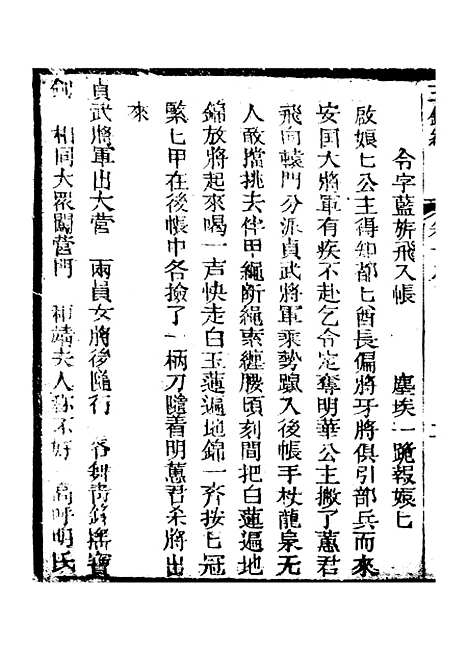 令字藍旂飛入帳　塵埃一跪報娘匕
啟娘匕公主得知都匕酋長偏將牙將俱引部兵而來
安国大將軍有疾不赴乞令定奪明華公主撇了蕙君
飛向轅門分派貞武將軍乘勢躐入後帳手杖龍泉无
人敢擋挑去伴甲繩断繩索纏腰頃刻間把白蓮遍地
錦放將起來喝一声快走白玉蓮遍地錦一齐按匕冠
緊匕甲在後帳中各撿了一柄刀隨着明蕙君杀將出
來
貞武將軍出大营　兩員女將後隨行　各舞青鋒摩寶
　相同大眾闖营門　神靖夫人称不好　高呼明氏